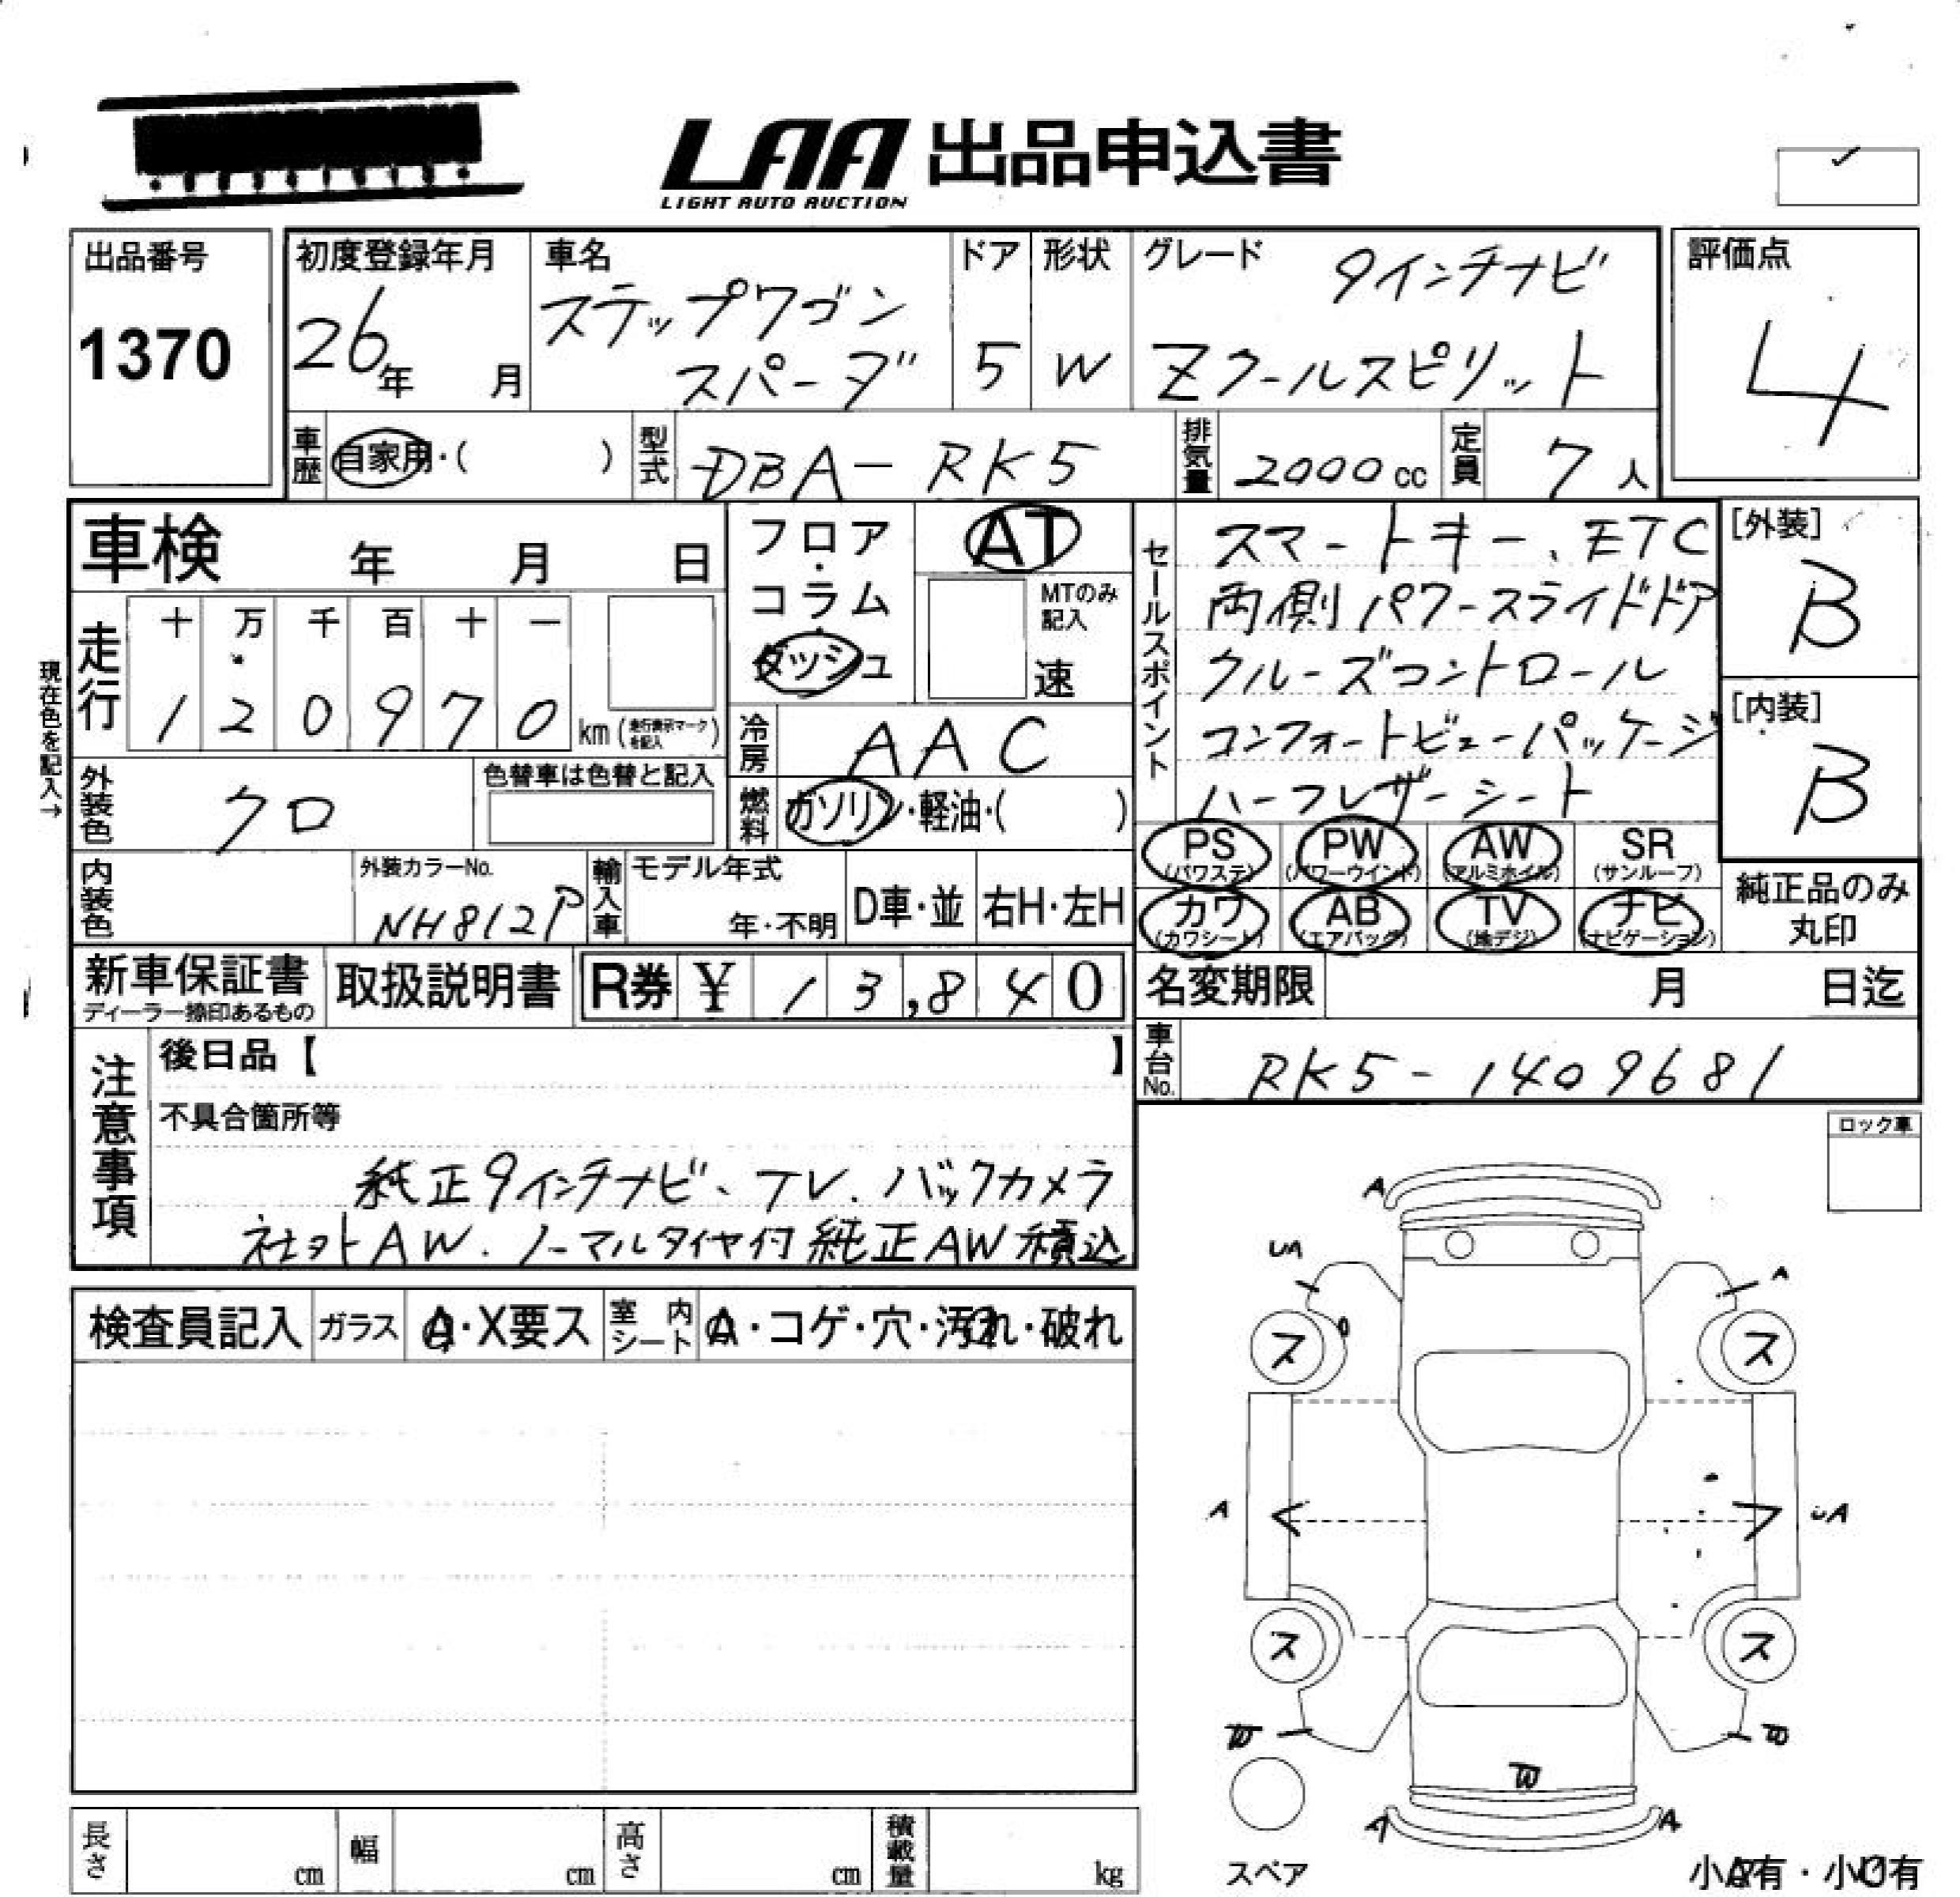 LAA 出品申込書
LIGHT AUTO AUCTION
出品番号
1370
初度登録年月
26年 月
車名
ステップワゴン
スパーダ
ドア
5
形状
W
グレード
9インチナビ
Zクールスピリット
評価点
4
車歴 自家用・( )
型式 DBA-RK5
排気量 2000cc
定員 7人
車検 年 月 日
現在色を記入→
走行
十 万 千 百 十 一
1 2 0 9 7 0 km (走行表示マークを記入)
フロア・コラム・ダッシュ
AT
MTのみ記入
速
冷房 AAC
燃料 ガソリン・軽油・( )
セールスポイント
スマートキー、ETC
両側パワースライドドア
クルーズコントロール
コンフォートビューパッケージ
ハーフレザーシート
[外装]
B
[内装]
B
外装色 クロ
色替車は色替と記入
内装色
外装カラーNo.
NH812P
輸入車
モデル年式
年・不明
D車・並
右H・左H
PS (パワステ)
PW (パワーウインド)
AW (アルミホイル)
SR (サンルーフ)
カワ (カワシート)
AB (エアバッグ)
TV (地デジ)
ナビ (ナビゲーション)
純正品のみ
丸印
新車保証書
ディーラー捺印あるもの
取扱説明書
R券 ¥ 13,840
名変期限 月 日迄
車台No. RK5-1409681
注意事項
後日品【 】
不具合箇所等
純正9インチナビ、TV、バックカメラ
社外AW.ノーマルタイヤ付純正AW積込
ロック車
検査員記入
ガラス
A・X要ス
室内シート
A・コゲ・穴・汚れ・破れ
A
UA
A
ス
ス
A
UA
ス
ス
W
W
W
A
A
スペア
小A有・小U有
長さ cm
幅 cm
高さ cm
積載量 kg